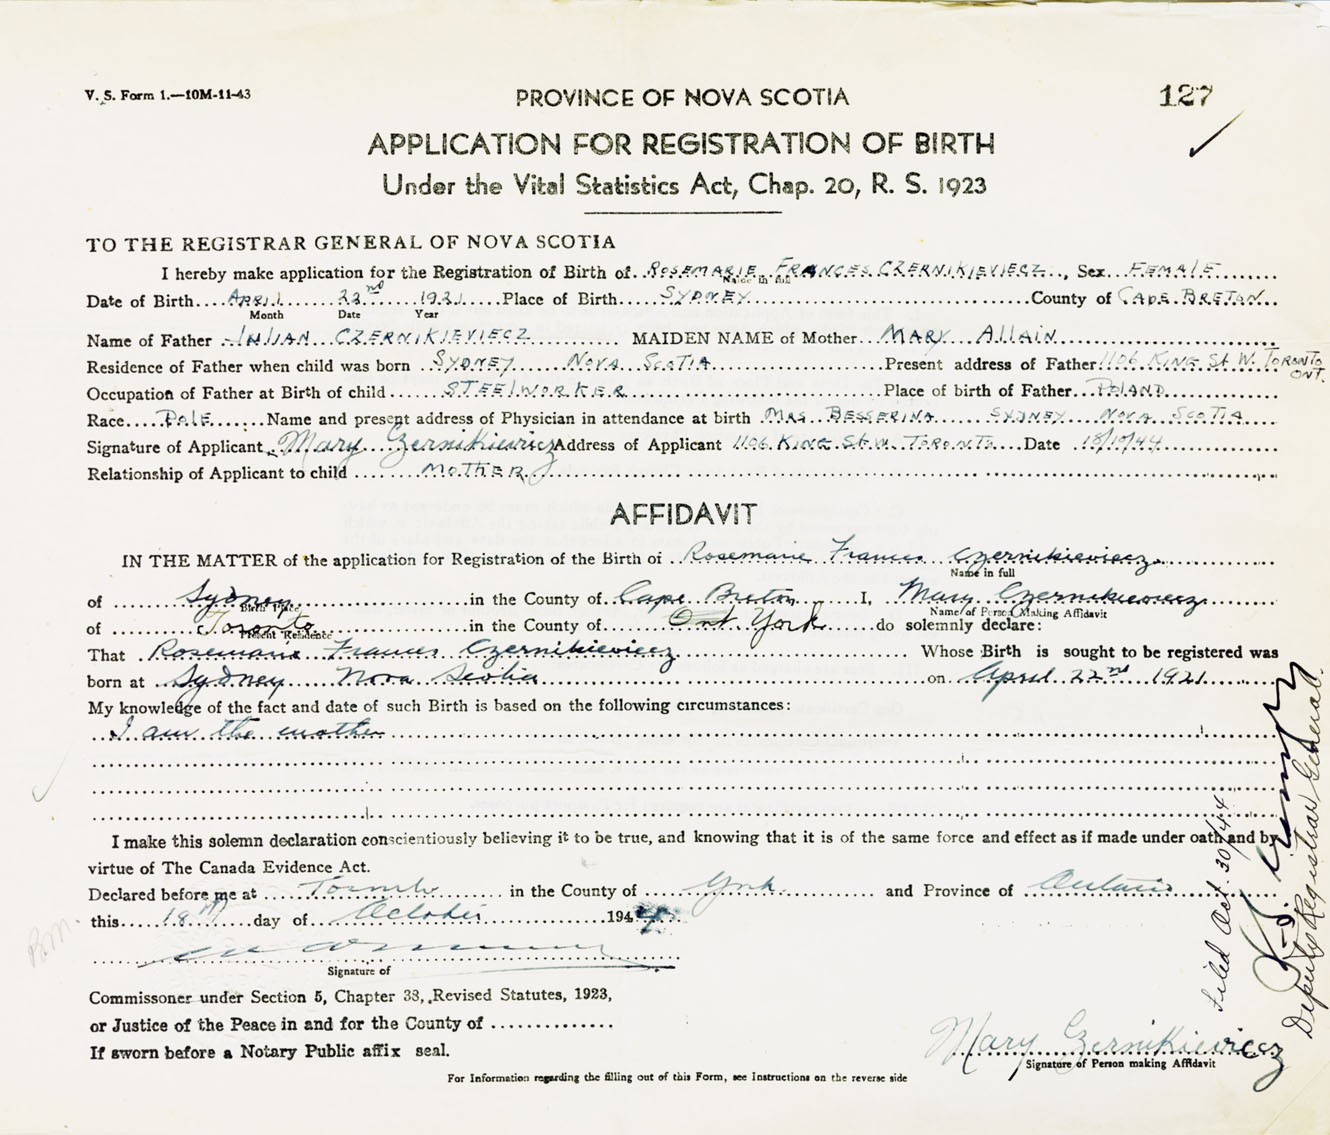 V. S. Form 1.—10M-11-43
PROVINCE OF NOVA SCOTIA
127
APPLICATION FOR REGISTRATION OF BIRTH
Under the Vital Statistics Act, Chap. 20, R. S. 1923
TO THE REGISTRAR GENERAL OF NOVA SCOTIA
I hereby make application for the Registration of Birth of ROSEMARIE FRANCES CZERNIKIEVIECZ, Sex FEMALE
Name in full
Date of Birth APRIL 22nd 1921 Place of Birth SYDNEY County of CAPE BRETON
Month Date Year
Name of Father JULIAN CZERNIKIEVIECZ MAIDEN NAME of Mother MARY ALLAIN
Residence of Father when child was born SYDNEY NOVA SCOTIA Present address of Father 1106 KING St W. TORONTO ONT.
Occupation of Father at Birth of child STEELWORKER Place of birth of Father POLAND
Race POLE Name and present address of Physician in attendance at birth MRS BESSERINA SYDNEY NOVA SCOTIA
Signature of Applicant Mary Czernikiewicz Address of Applicant 1106 KING St W. TORONTO Date 18/10/44
Relationship of Applicant to child MOTHER
AFFIDAVIT
IN THE MATTER of the application for Registration of the Birth of Rosemarie Frances Czernikieviecz
Name in full
of Sydney in the County of Cape Breton I, Mary Czernikieviecz
Birth Place Name of Person Making Affidavit
of Toronto in the County of Ont York do solemnly declare:
Present Residence
That Rosemarie Frances Czernikieviecz Whose Birth is sought to be registered was
born at Sydney Nova Scotia on April 22nd 1921
My knowledge of the fact and date of such Birth is based on the following circumstances:
I am the mother
I make this solemn declaration conscientiously believing it to be true, and knowing that it is of the same force and effect as if made under oath and by
virtue of The Canada Evidence Act.
Declared before me at Toronto in the County of York and Province of Ontario
this 18th day of October 1944
Signature of
Commissoner under Section 5, Chapter 38, Revised Statutes, 1923,
or Justice of the Peace in and for the County of
If sworn before a Notary Public affix seal.
Mary Czernikieviecz
Signature of Person making Affidavit
For Information regarding the filling out of this Form, see Instructions on the reverse side
Filed Oct. 30/44
Deputy Registrar General.
B.M.